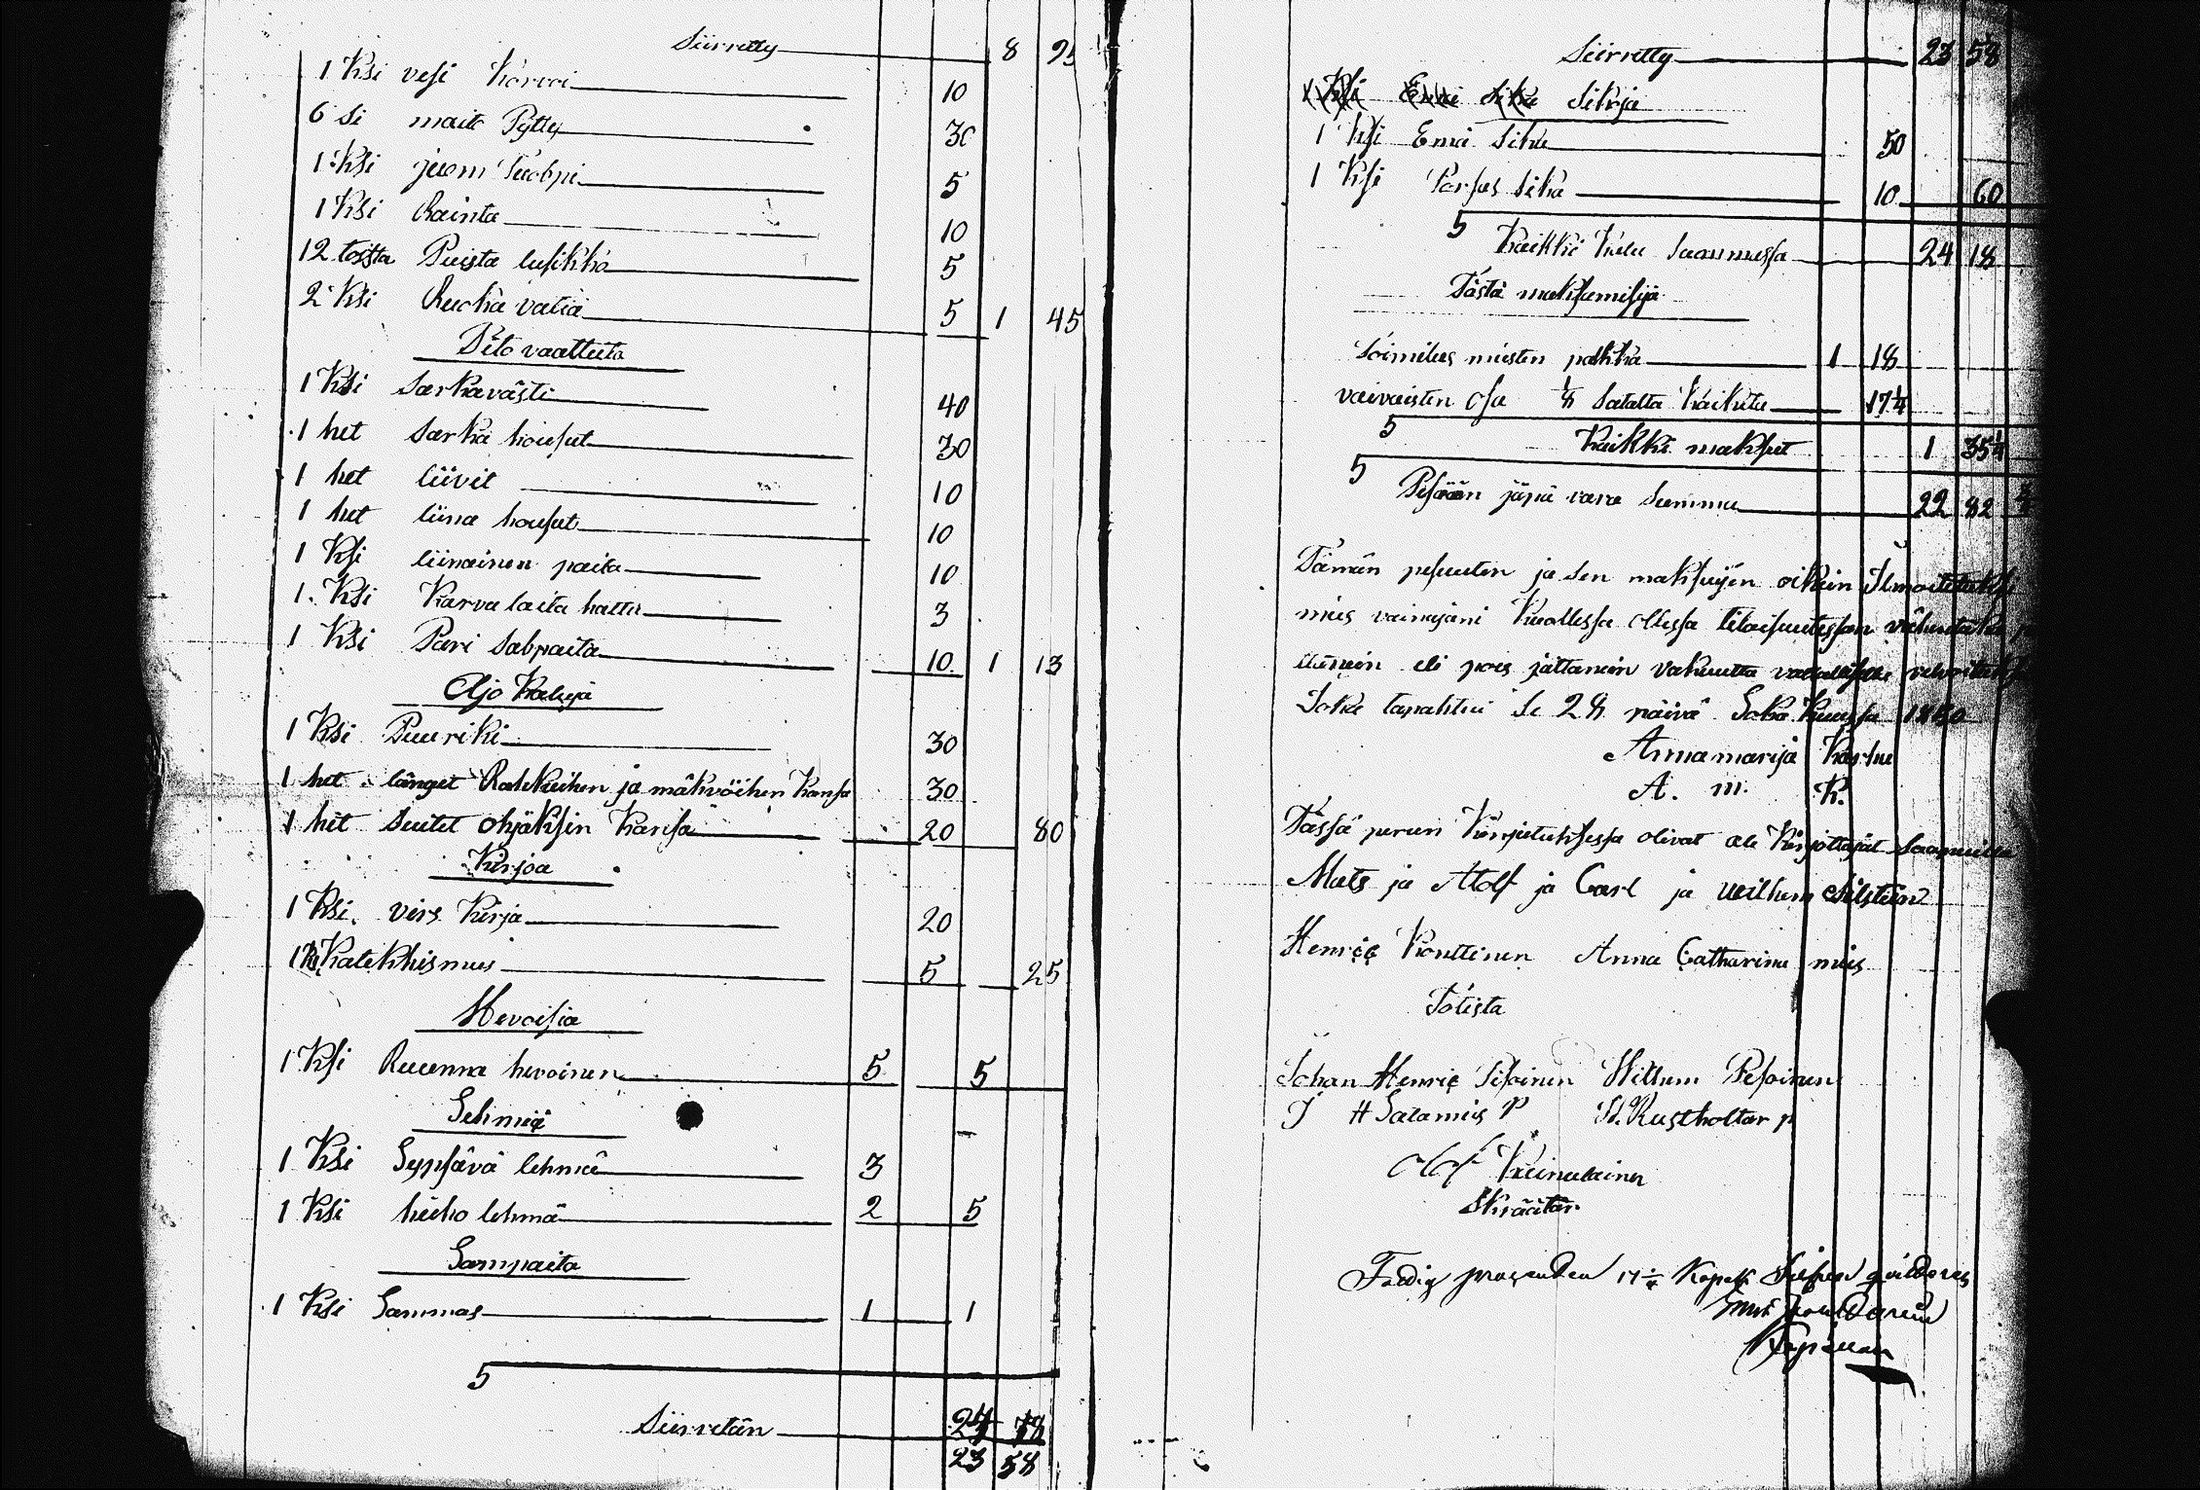 Siirretty 8 95
1 Ksi vesi Korvoi 10
6 si maito Pytty 30
1 Ksi juom Tuobpi 5
1 Ksi Rainta 10
12 toista Puista lusikka 5
2 Ksi Ruoka vatia 5 1 45
Pito vaatteita
1 Ksi Sarkavästi 40
1 het Sarka housut 30
1 het liivit 10
1 het liina housut 10
1 Ksi liinainen paita 10
1 Ksi Karva laita hattu 3
1 Ksi Pari Sabpaita 10 1 13
Ajo Kaluja
1 Ksi Puuriki 30
1 het länget Rahkeihen ja mäkvöihen Kansa 30
1 het Suitet ohjaksin Kansa 20 80
Kirjoa
1 Ksi virs Kirja 20
1 K Katekhismus 5 25
Hevoisia
1 Ksi Ruuenna hevoinen 5 5
Lehmiä
1 Ksi Lypsävä lehmä 3
1 Ksi hieho lehmä 2 5
Lampaita
1 Ksi Lammas 1 1
5
Siirretän 24 18
23 58
Siirretty 23 58
Ksi Emä Sika Sikoja
1 Ksi Emä Sika 50
1 Ksi Porsas Sika 10 60
5 Kaikki Kalu Suummassa 24 18
Tästä maksamisija
Toimitus miesten palkka 1 18
vaivaisten Osa Satalta Kaikista 17 1/4
5 Kaikki maksut 1 35 1/4
5 Pesään jäpä vara Summa 22 82
Tämän pesuuten ja sen maksujen oikein Ilmoitetuksi
mies vainajani Kuollessa Ollessa tilaisuutessan
eli pois jättämäin vakuutta
Joka tapahtui se 28 päivä Loka Kuussa 1850
Annamarija Karhu
A. M. K.
Tässä perun Kirjutuksessa olivat ale Kirjottajat Saapuilla
Mats ja Atolf ja Carl ja Willum
Henric Konttinen Anna Catharina mies
Totista
Johan Henric Pesoinen Willum Pesoinen
J H Salamies P St. Rustholtar p
Olof Keinalainen
Skräätar
Fattig procenten 17 1/4 Kopek Silfver